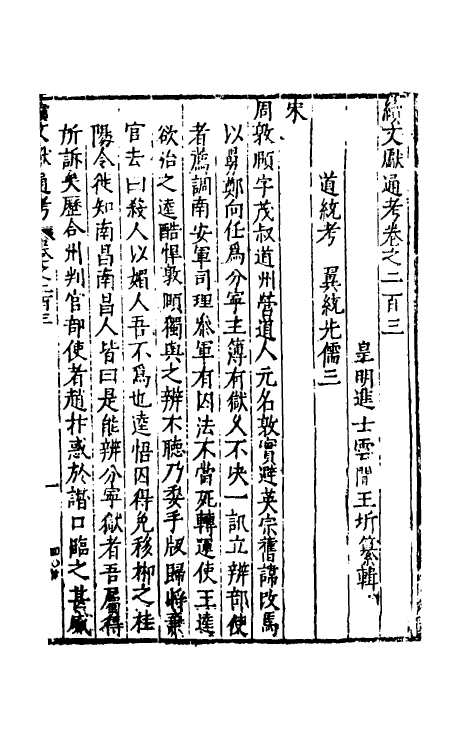 續文獻通考卷之二百三
皇明進士雲間王圻纂輯
道統考　翼統先儒三
宋
周敦頤字茂叔道州營道人元名敦實避英宗舊諱改焉
以舅鄭向任為分寧主簿有獄久不決一訊立辨部使
者薦調南安軍司理參軍有囚法不當死轉運使王逵
欲治之逵酷悍敦頤獨與之辨不聽乃委手版歸將棄
官去曰殺人以媚人吾不為也逵悟囚得免移郴之桂
陽令徙知南昌南昌人皆曰是能辨分寧獄者吾屬得
所訴矣歷合州判官部使者趙抃惑於譖口臨之甚威
文獻通考
一